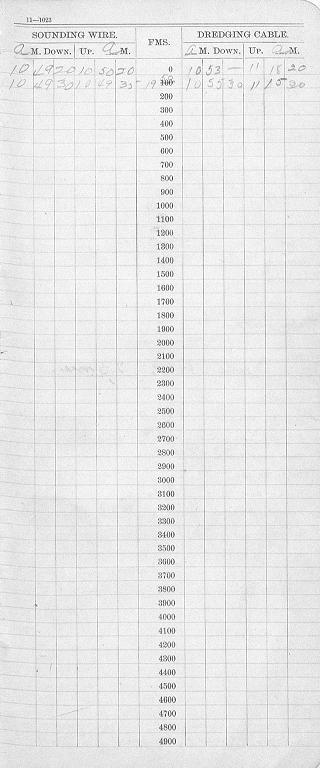 11—1023
SOUNDING WIRE. FMS. DREDGING CABLE.
a M. DOWN. UP. a M. a M. DOWN. UP. a M.
10 49 20 10 50 20 0 10 53 — 11 18 20
10 49 30 10 49 35 100 10 55 30 11 15 20
200
300
400
500
600
700
800
900
1000
1100
1200
1300
1400
1500
1600
1700
1800
1900
2000
2100
2200
2300
2400
2500
2600
2700
2800
2900
3000
3100
3200
3300
3400
3500
3600
3700
3800
3900
4000
4100
4200
4300
4400
4500
4600
4700
4800
4900